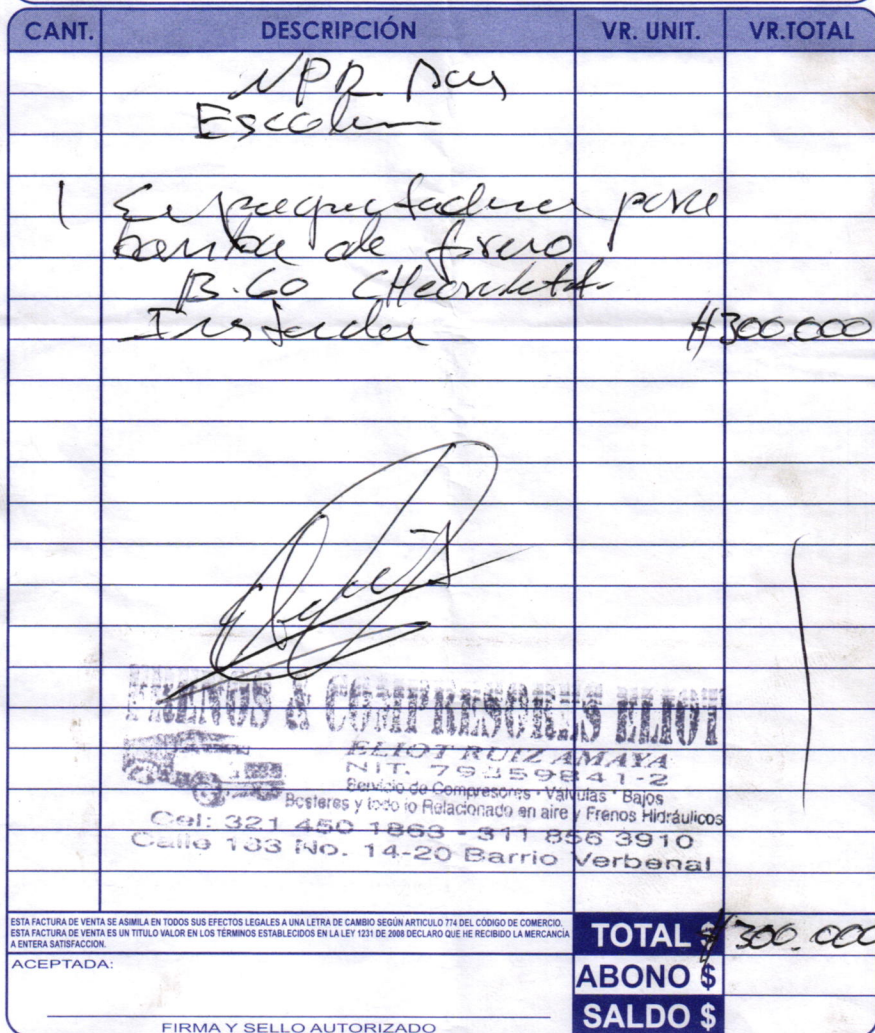 CANT. DESCRIPCIÓN VR. UNIT. VR.TOTAL
NPR
1 para
de freno
B.60
#300.000
FRENOS & COMPRESORES ELIOT
ELIOT RUIZ AMAYA
NIT. 79359841-2
Servicio de Compresores • Válvulas • Bajos
Bosteres y todo lo Relacionado en aire y Frenos Hidráulicos
Cel: 321 450 1863 - 311 856 3910
Calle 183 No. 14-20 Barrio Verbenal
ESTA FACTURA DE VENTA SE ASIMILA EN TODOS SUS EFECTOS LEGALES A UNA LETRA DE CAMBIO SEGÚN ARTICULO 774 DEL CÓDIGO DE COMERCIO.
ESTA FACTURA DE VENTA ES UN TITULO VALOR EN LOS TÉRMINOS ESTABLECIDOS EN LA LEY 1231 DE 2008 DECLARO QUE HE RECIBIDO LA MERCANCÍA
A ENTERA SATISFACCION.
TOTAL $ #300.000
ACEPTADA:
ABONO $
SALDO $
FIRMA Y SELLO AUTORIZADO